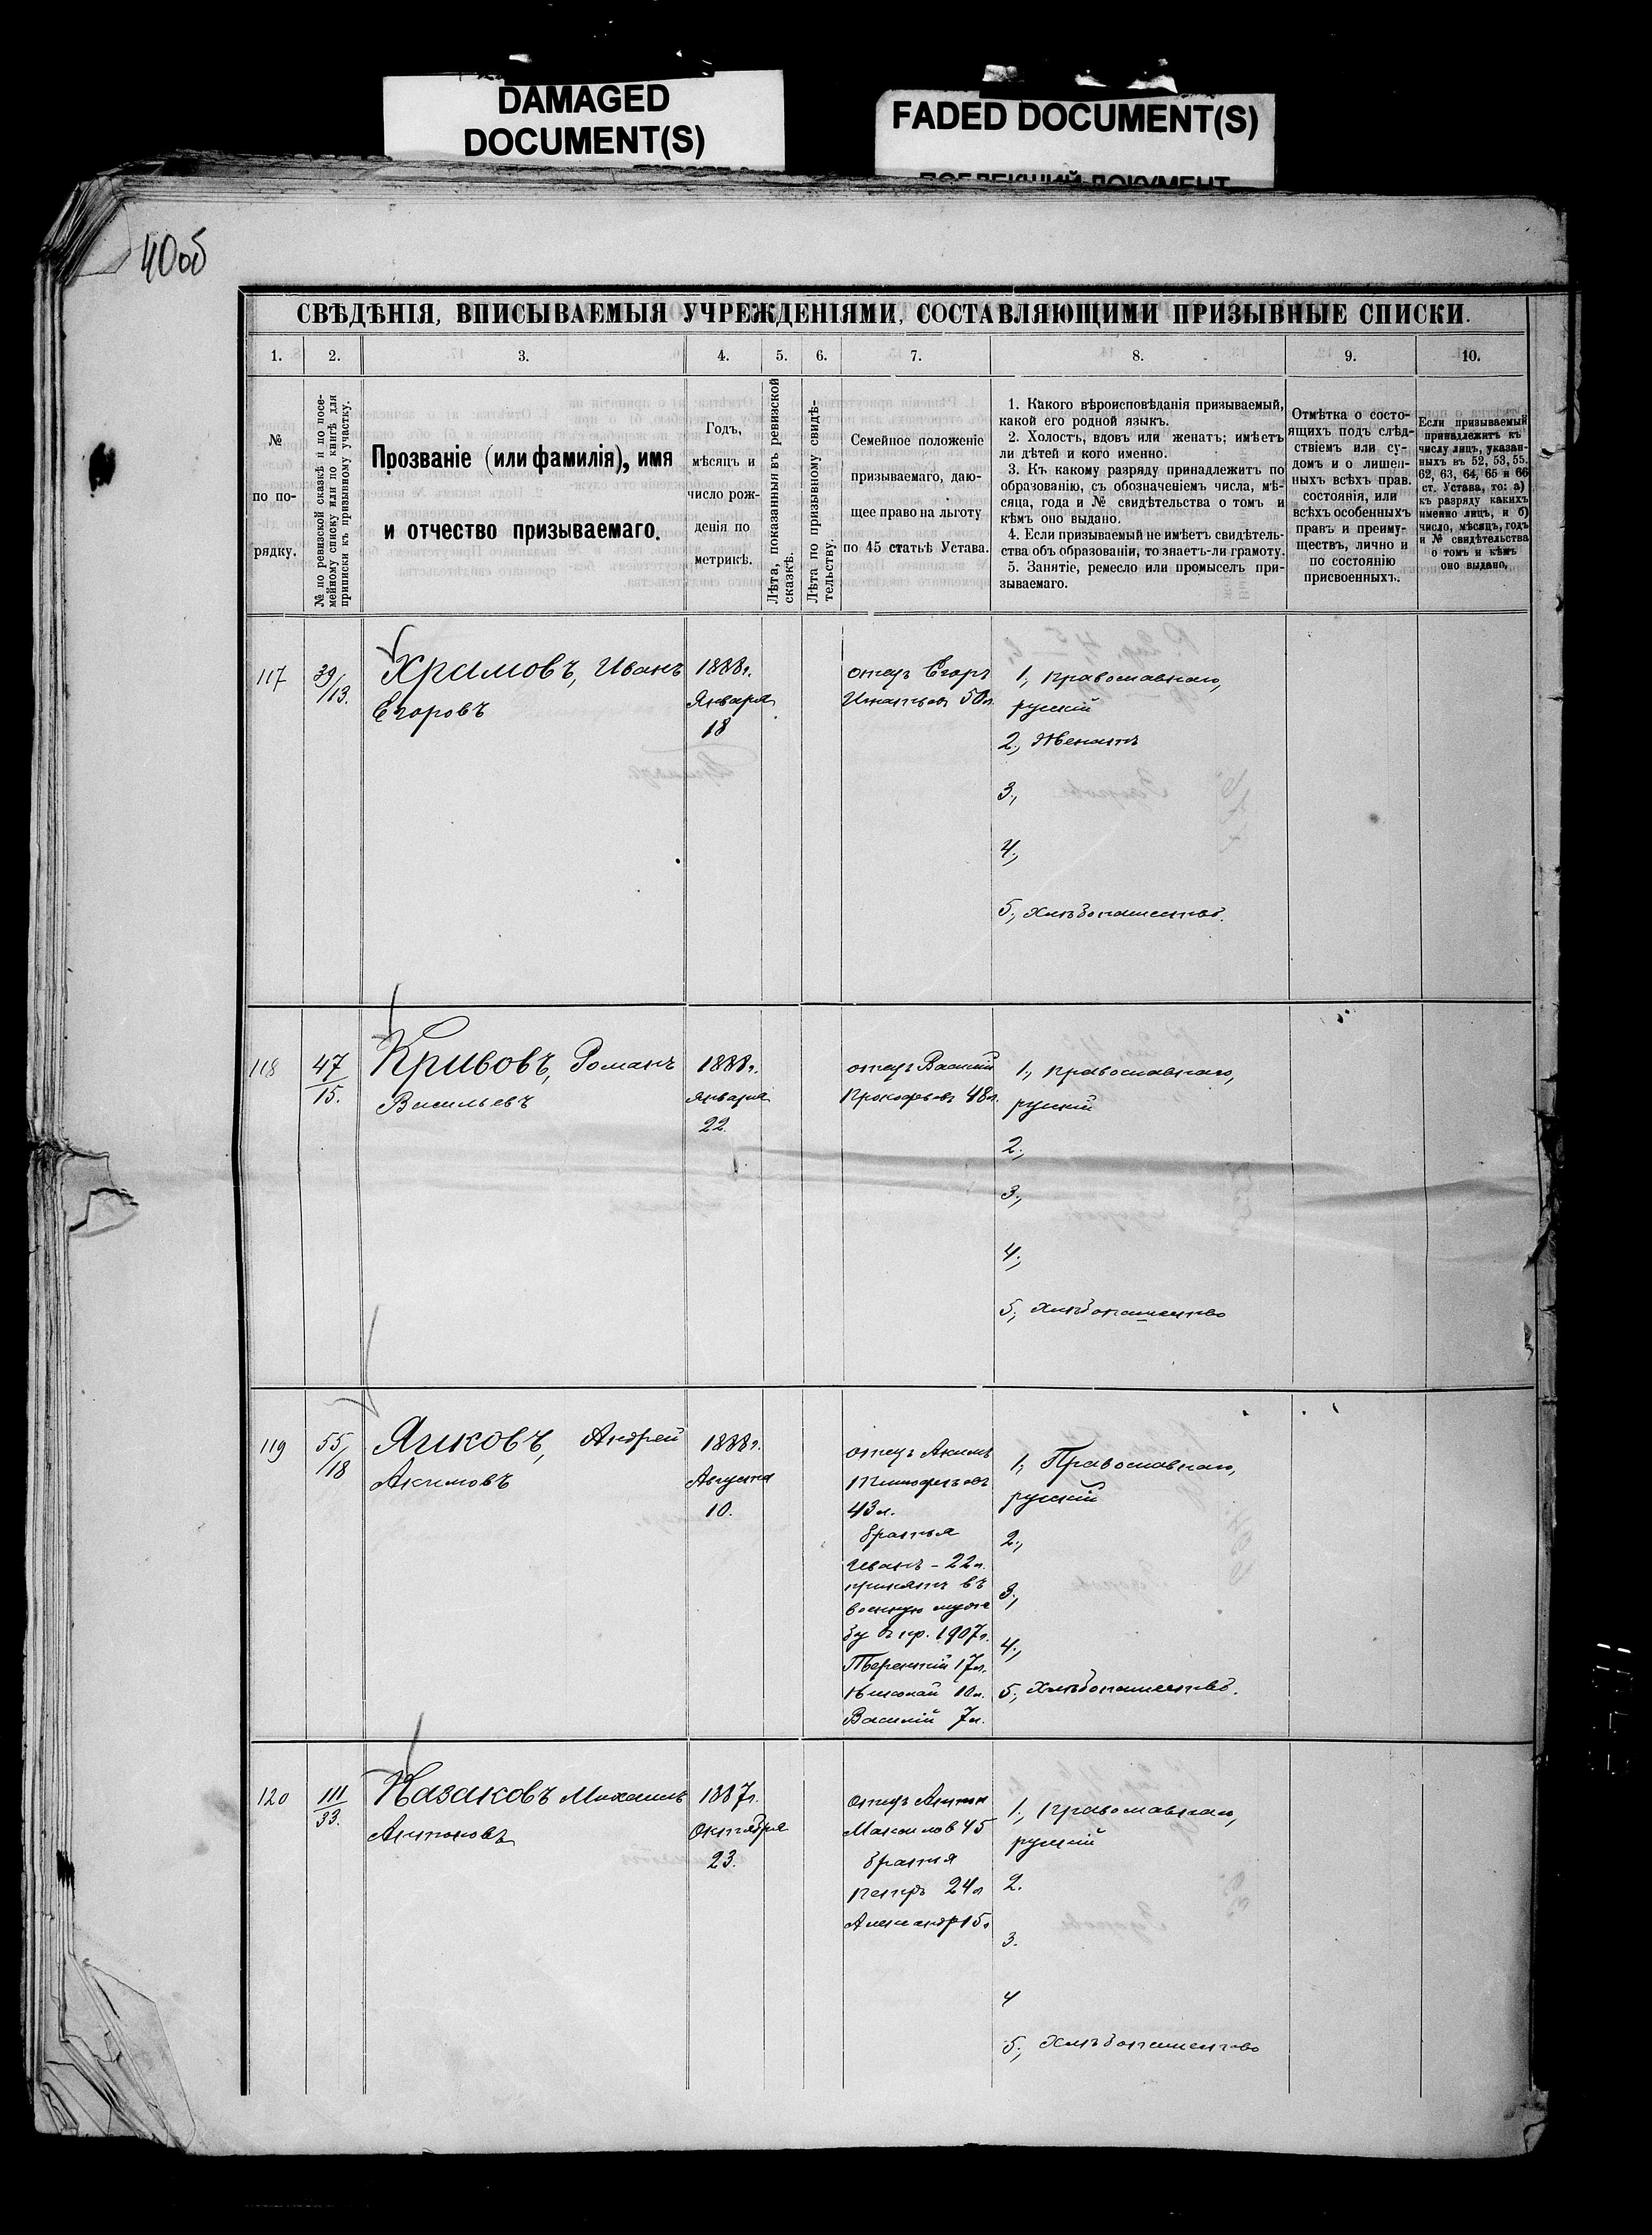 DAMAGED
DOCUMENT(S)
FADED DOCUMENT(S)
ПОБЛЕКШИЙ ДОКУМЕНТ
40об
СВѢДѢНІЯ, ВПИСЫВАЕМЫЯ УЧРЕЖДЕНІЯМИ, СОСТАВЛЯЮЩИМИ ПРИЗЫВНЫЕ СПИСКИ.
1. 2. 3. 4. 5. 6. 7. 8. 9. 10.
№
по по-
рядку.
№ по ревизской сказкѣ и по посе-
мейному списку или по книгѣ для
приписки къ призывному участку.
Прозваніе (или фамилія), имя
и отчество призываемаго.
Годъ,
мѣсяцъ и
число рож-
денія по
метрикѣ.
Лѣта, показанныя въ ревизской
сказкѣ.
Лѣта по призывному свидѣ-
тельству.
Семейное положеніе
призываемаго, даю-
щее право на льготу
по 45 статьѣ Устава.
1. Какого вѣроисповѣданія призываемый,
какой его родной языкъ.
2. Холостъ, вдовъ или женатъ; имѣетъ
ли дѣтей и кого именно.
3. Къ какому разряду принадлежитъ по
образованію, съ обозначеніемъ числа, мѣ-
сяца, года и № свидѣтельства о томъ и
кѣмъ оно выдано.
4. Если призываемый не имѣетъ свидѣтель-
ства объ образованіи, то знаетъ-ли грамоту.
5. Занятіе, ремесло или промыселъ при-
зываемаго.
Отмѣтка о состо-
ящихъ подъ слѣд-
ствіемъ или су-
домъ и о лишен-
ныхъ всѣхъ прав.
состоянія, или
всѣхъ особенныхъ
правъ и преиму-
ществъ, лично и
по состоянію
присвоенныхъ.
Если призываемый
принадлежитъ къ
числу лицъ, указан-
ныхъ въ 52, 53, 55,
62, 63, 64, 65 и 66
ст. Устава, то: а)
къ разряду какихъ
именно лицъ, и б)
число, мѣсяцъ, годъ
и № свидѣтельства
о томъ и кѣмъ
оно выдано.
117
39/13.
Храмовъ, Иванъ
Егоровъ
1888г.
Января
18
отецъ Егоръ
Игнатьевъ 50л.
1., православнаго,
русскій
2., Женатъ
3.,
4.,
5., Хлѣбопашество.
118
47
15.
Кривовъ, Романъ
Васильевъ
1888г.
января
22.
отецъ Василій
Прокофьевъ 48л.
1., православнаго,
русскій
2.,
3.,
4.,
5., Хлѣбопашество
119
55/18
Яшковъ, Андрей
Акимовъ
1888г.
Августа
10.
отецъ Акимъ
Тимофеевъ
43л.
братья
Иванъ - 22л.
принятъ въ
военную служ
бу въ пр. 1907г.
Терентій 17л.
Николай 10л.
Василій 7л.
1., Православнаго,
русскій
2.,
3.,
4.,
5., Хлѣбопашество.
120
111
33.
Казаковъ Михаилъ
Антоновъ
1887г.
Октября
23.
отецъ Антонъ
45
братья
Петръ 24л
Александръ 15л
1., православнаго,
русскій
2.
3.
4
5., Хлѣбопашество